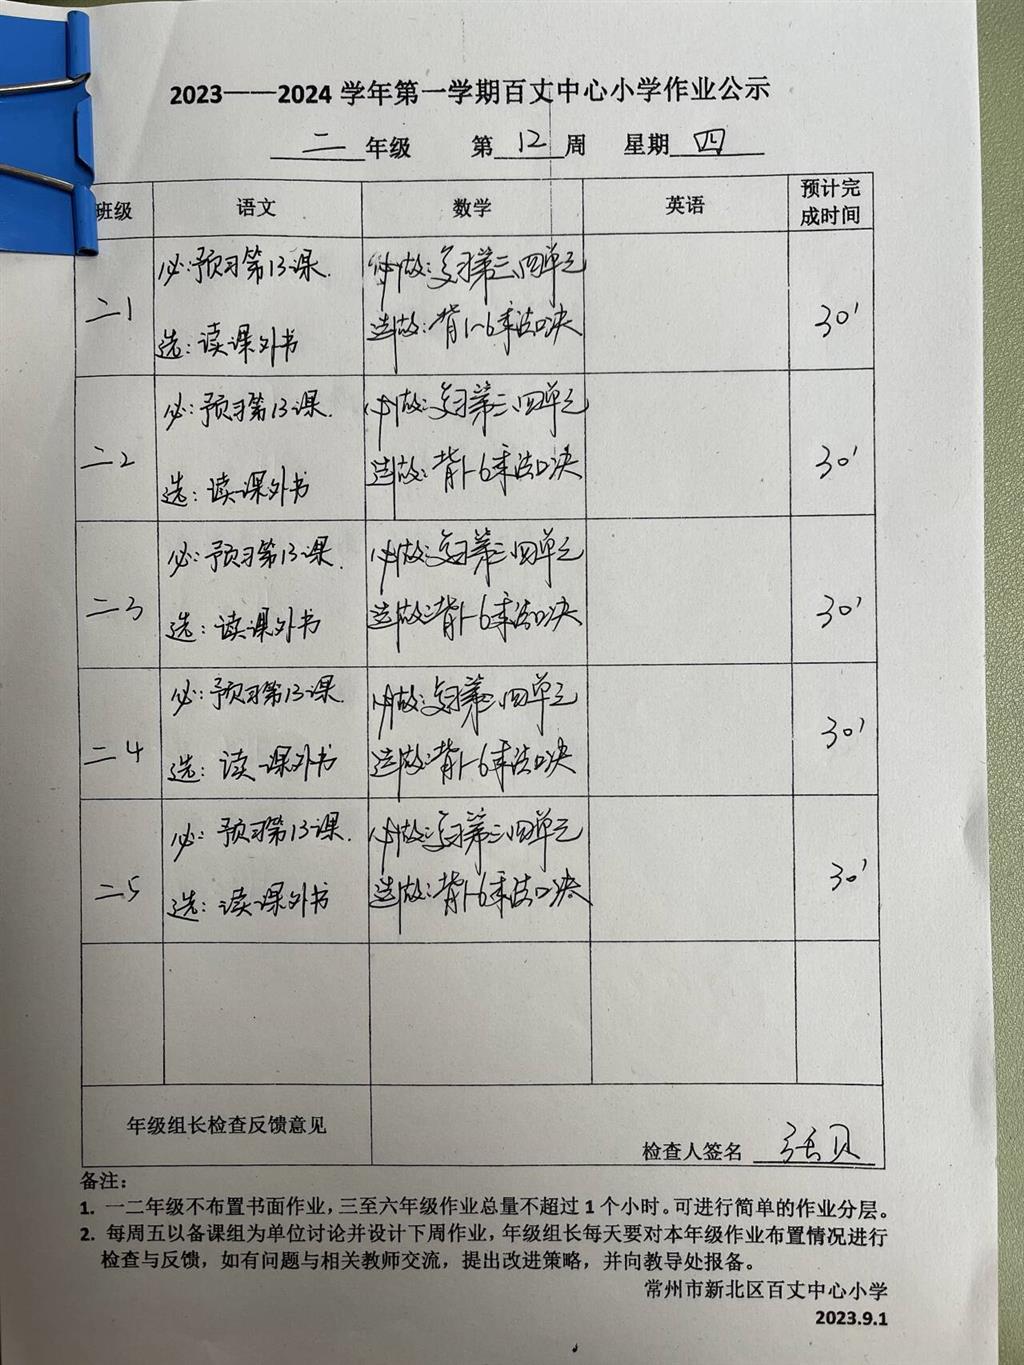 2023——2024 学年第一学期百丈中心小学作业公示
二 年级 第 12 周 星期 四
班级 语文 数学 英语 预计完成时间
必:预习第13课. 必做:复习第三、四单元
二1 30'
选:读课外书 选做:背1-6乘法口决
必:预习第13课. 必做:复习第三、四单元
二2 30'
选:读课外书 选做:背1-6乘法口决
必:预习第13课. 必做:复习第三、四单元
二3 30'
选:读课外书 选做:背1-6乘法口决
必:预习第13课. 必做:复习第三、四单元
二4 30'
选:读课外书 选做:背1-6乘法口决
必:预习第13课. 必做:复习第三、四单元
二5 30'
选:读课外书 选做:背1-6乘法口决
年级组长检查反馈意见
检查人签名 张贝
备注:
1. 一二年级不布置书面作业，三至六年级作业总量不超过 1 个小时。可进行简单的作业分层。
2. 每周五以备课组为单位讨论并设计下周作业，年级组长每天要对本年级作业布置情况进行
检查与反馈，如有问题与相关教师交流，提出改进策略，并向教导处报备。
常州市新北区百丈中心小学
2023.9.1